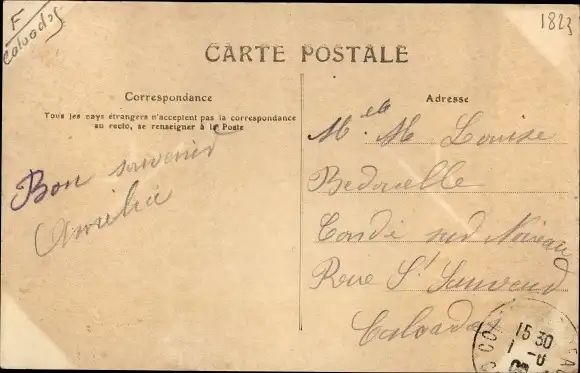 F
Calvados
1823
CARTE POSTALE
Correspondance
Tous les pays étrangers n'acceptent pas la correspondance
au recto, se renseigner à la Poste
Bon souvenir
Amélie
Adresse
Melle M Louise
Bedouelle
Condé sur Noireau
Rue St Sauveur
Calvados
15 30
1 -6